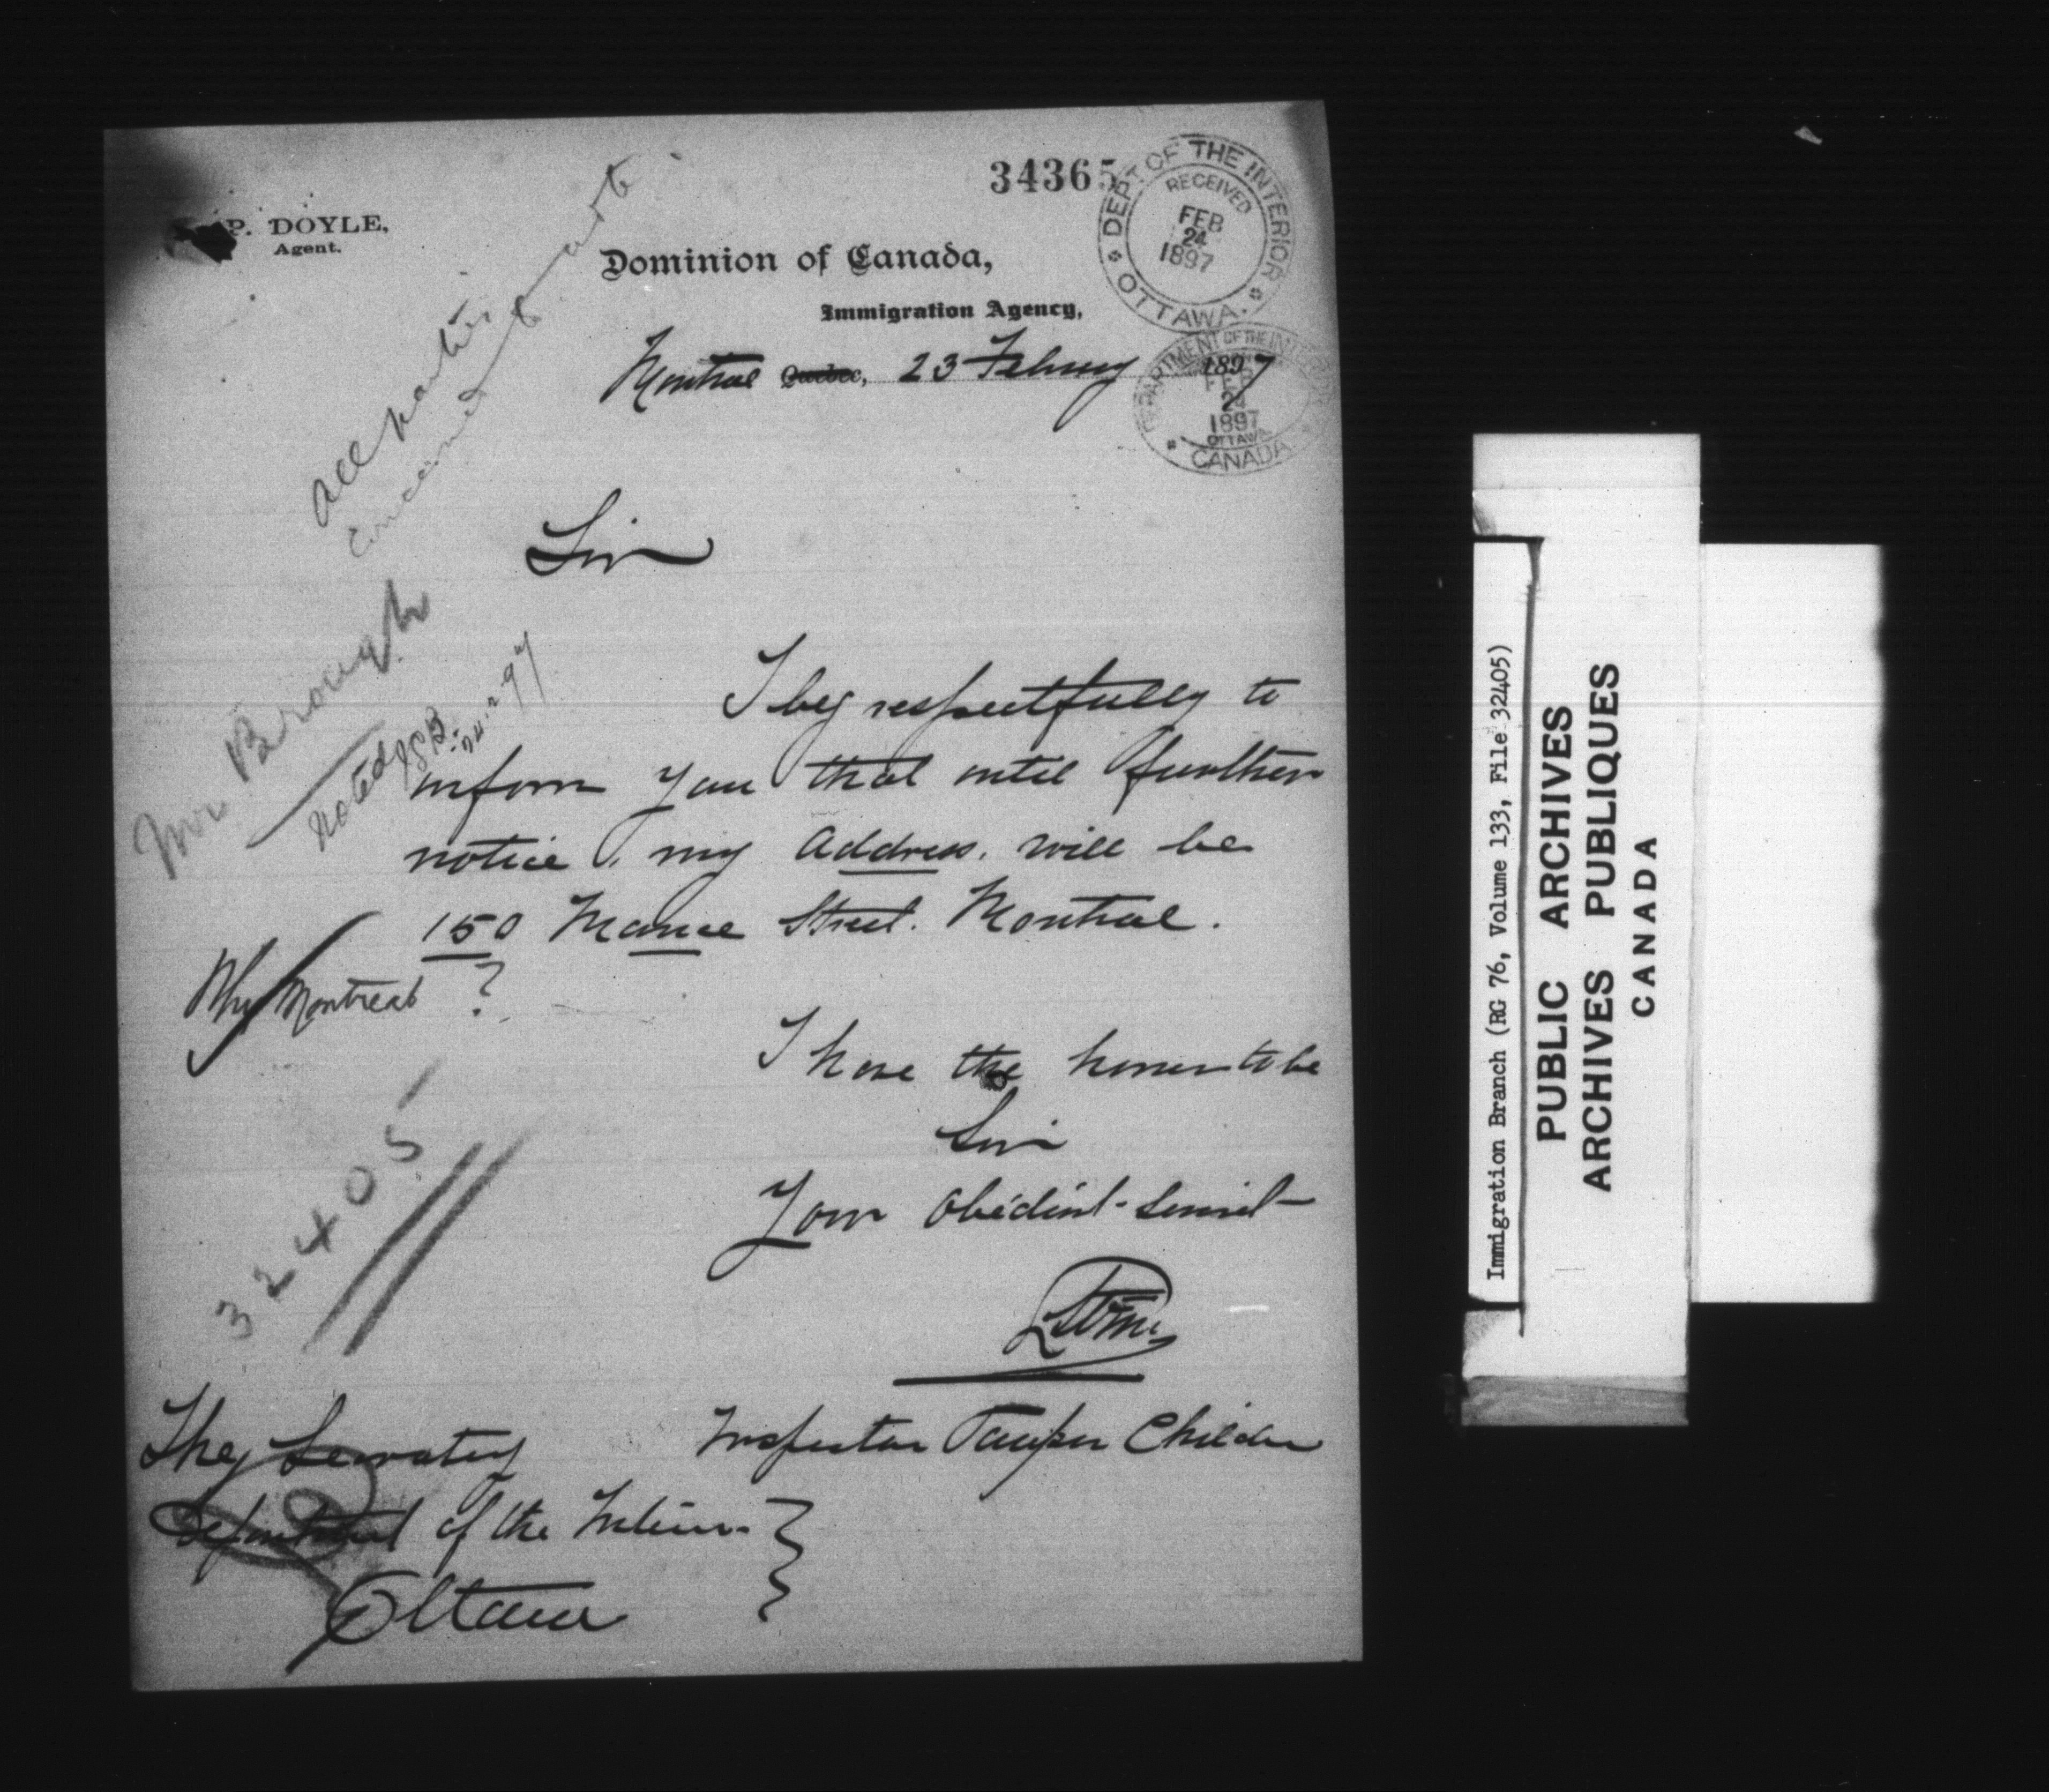 34365
DEPT. OF THE INTERIOR
RECEIVED
FEB
24
1897
OTTAWA.
P. DOYLE,
Agent.
Dominion of Canada,
Immigration Agency,
Montreal Quebec, 23 February 1897
DEPARTMENT OF THE INTERIOR
FEB
24
1897
OTTAWA
CANADA
all parties
Mr Brough
Noted
24.2.97
Sir
I beg respectfully to
inform you that until further
notice, my address. will be
150 Mance Street. Montreal.
Why Montreal ?
I have the honor to be
Sir
Your obedient servant
32405
Inspector Pauper Children
The Secretary
Department of the Interior
Ottawa
Immigration Branch (RG 76, Volume 133, File 32405)
PUBLIC ARCHIVES
ARCHIVES PUBLIQUES
CANADA